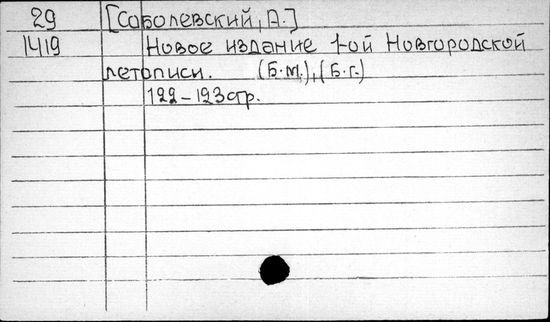 29 [Соболевский, А.]
1419 Новое издание 1-ой Новгородской
летописи. (Б.м.), (Б.г.)
122-123 стр.